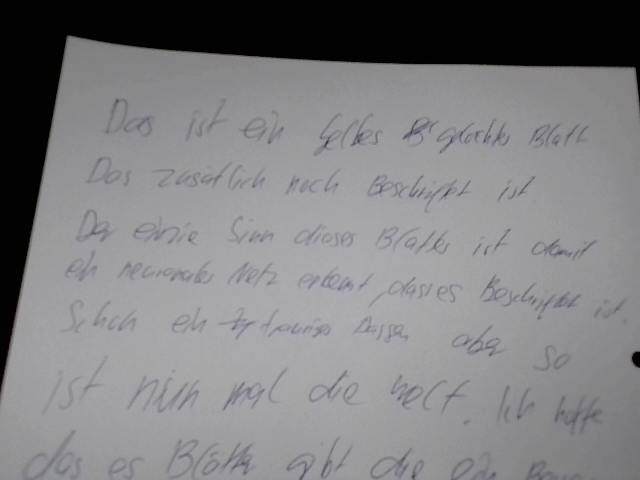 Das ist ein gelbes Blatt
Das zusätlich noch Beschriftet ist
Der einzie Sinn dieses Blattes ist damit
ein neuronales Netz erkennt, dass es Beschriftet ist.
Schon ein trauriges aber so
ist nun mal die welt. Ich hoffe
das es Blätter gibt die ein